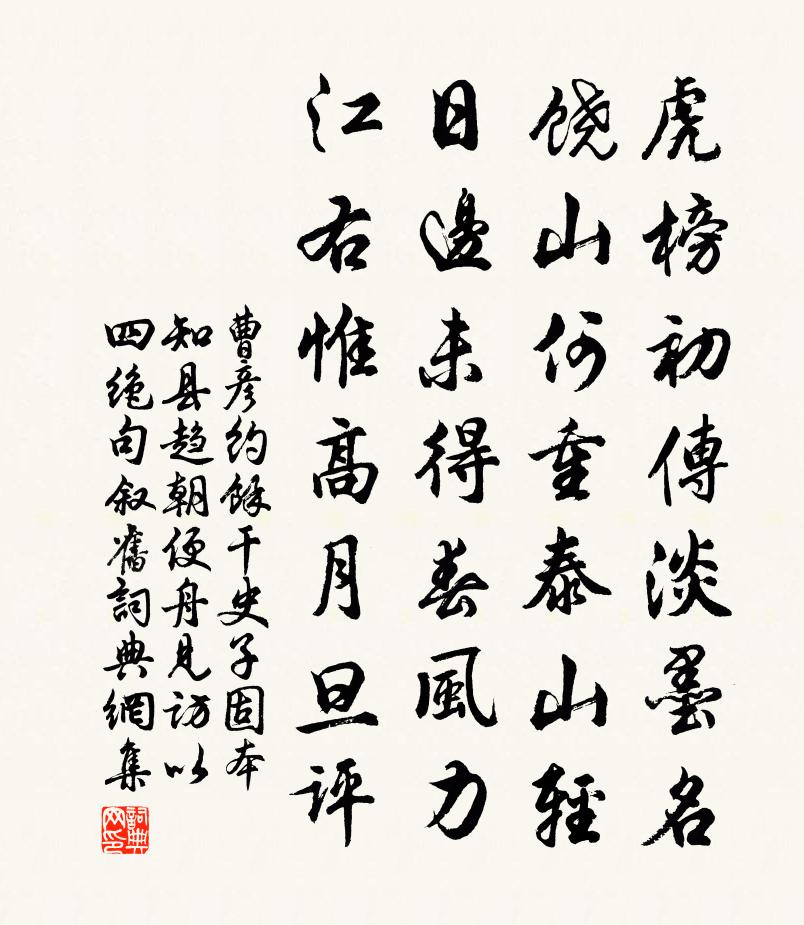 虎榜初傳淡墨名
饶山何重泰山輕
日邊未得春風力
江右惟高月旦評
曹彦约餘干史子固本
知县趋朝便舟見訪以
四绝句叙舊詞典網集
詞典网印